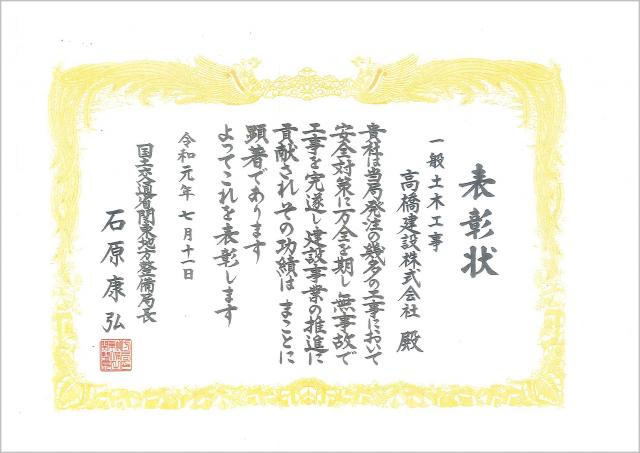 表彰状
一般土木工事
高橋建設株式会社 殿
貴社は当局発注の幾多の工事において
安全対策に万全を期し無事故で
工事を完遂し建設事業の推進に
貢献され その功績は まことに
顕著であります
よってこれを表彰します
令和元年七月十一日
国土交通省関東地方整備局長
石原康弘